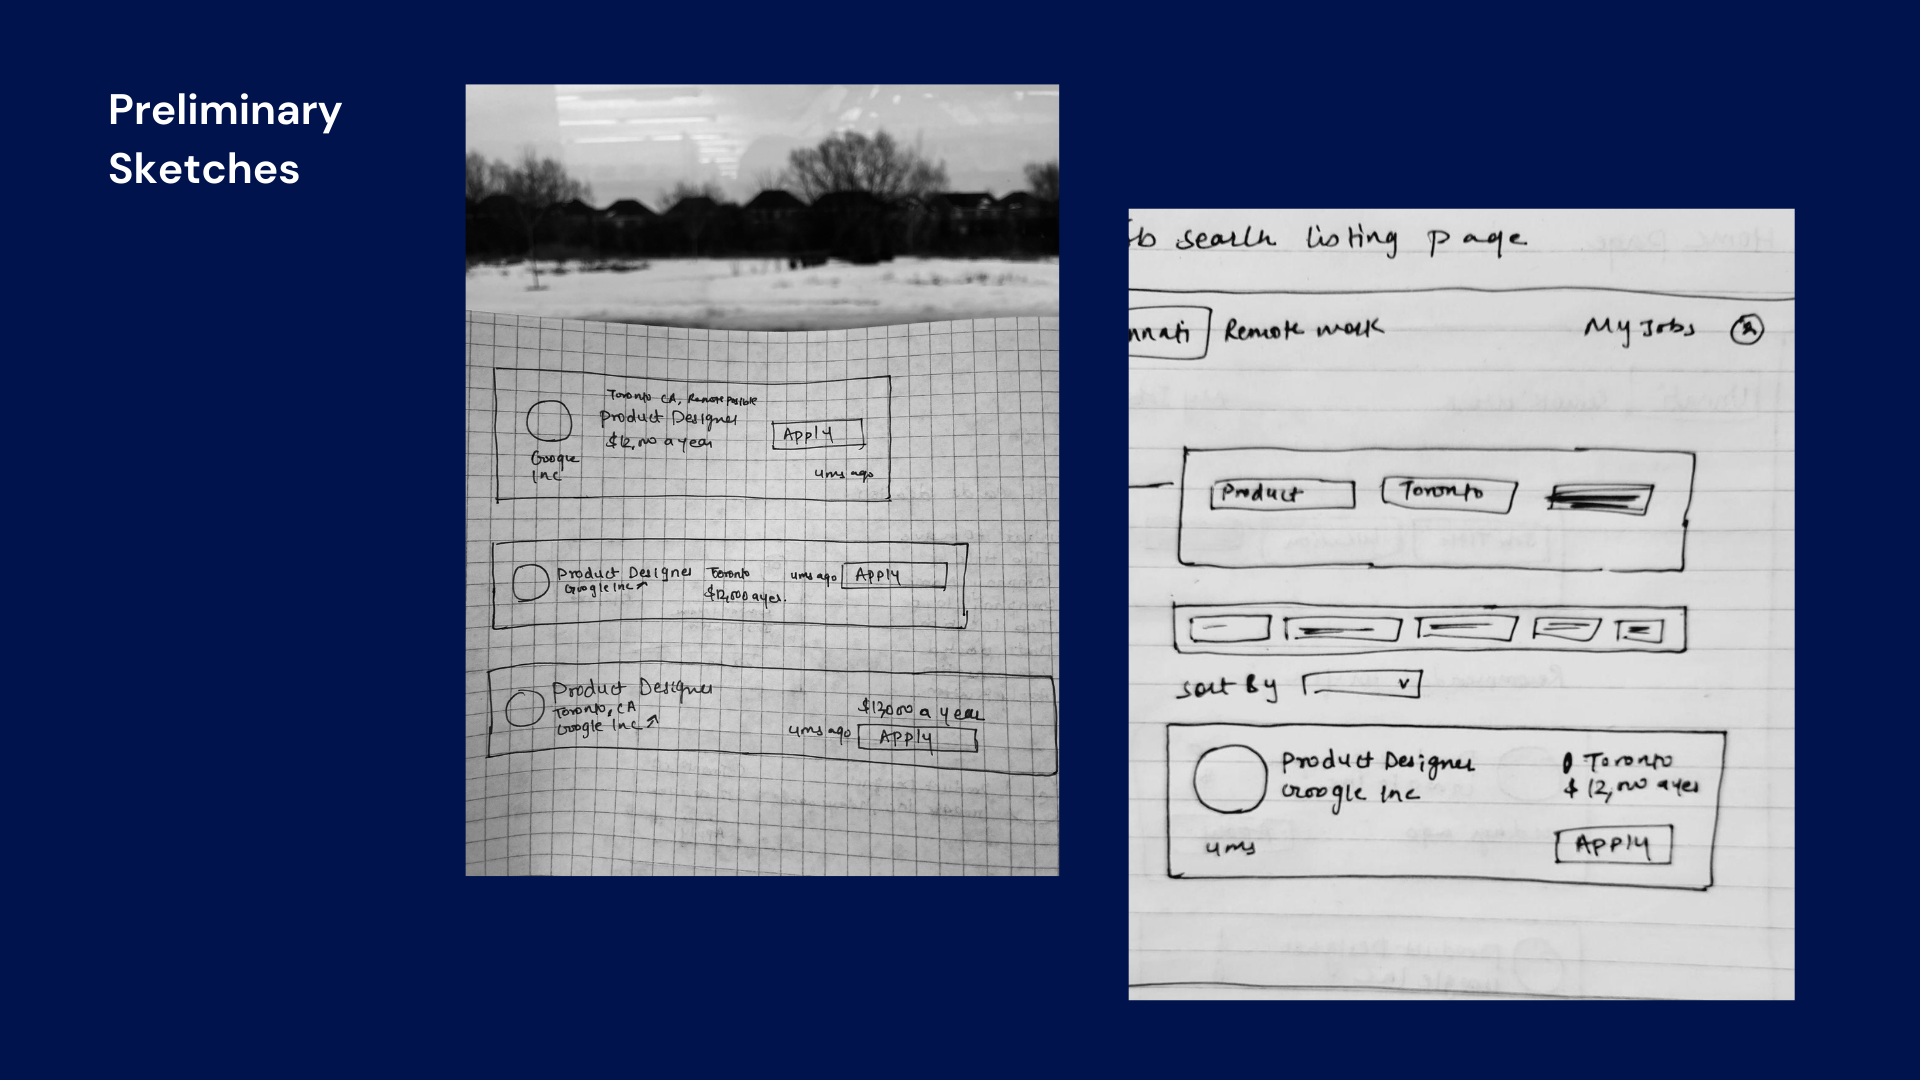 Preliminary
Sketches
Toronto CA, Remote Posible
Product Designer
$12,000 a year
Apply
Google
Inc
4ms ago
Product Designer Toronto 4ms ago Apply
Google Inc ↗ $12,000 a yer.
Product Designer
Toronto, CA
Google Inc ↗
$12000 a year
4ms ago APPly
b search listing page
nnati Remote work My Jobs
Product Toronto
Sort By
Product Designer Toronto
Google Inc $12,000 a yer
4ms APPly